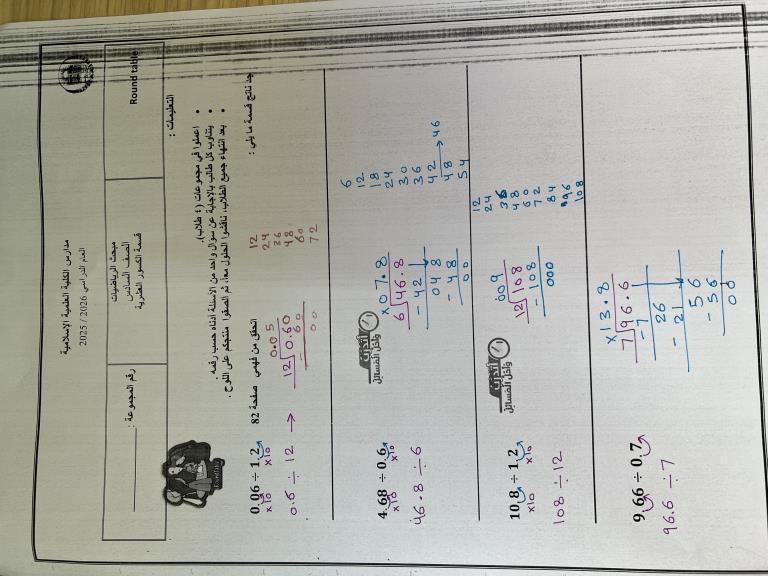 مدارس الكلية العلمية الإسلامية
العام الدراسي 2025 / 2026
Round table
مبحث الرياضيات
الصف السادس
قسمة الكسور العشرية
رقم المجموعة :
التعليمات :
اعملوا في مجموعات (٤ طلاب).
يتناوب كل طالب بالإجابة عن سؤال واحد من الأسئلة أدناه حسب رقمه .
بعد انتهاء جميع الطلاب، ناقشوا الحلول معا، ثم ألصقوا منتجكم على اللوح .
جد ناتج قسمة ما يلي :
أتحقق من فهمي صفحة 82
0.06 ÷ 1.2
x10 x10
0.6 ÷ 12 →
0.05
12 0.60
- 60
00
12
24
36
48
60
72
أتدرب
وأحل المسائل
4.68 ÷ 0.6
x10 x10
46.8 ÷ 6
x07.8
6 46.8
- 42
048
- 48
00
6
12
18
24
30
36
42 → 46
48
54
أتدرب
وأحل المسائل
10.8 ÷ 1.2
x10 x10
108 ÷ 12
009
12 108
- 108
000
12
24
36
48
60
72
84
96
108
9.66 ÷ 0.7
96.6 ÷ 7
x13.8
7 96.6
- 7
26
- 21
56
- 56
00